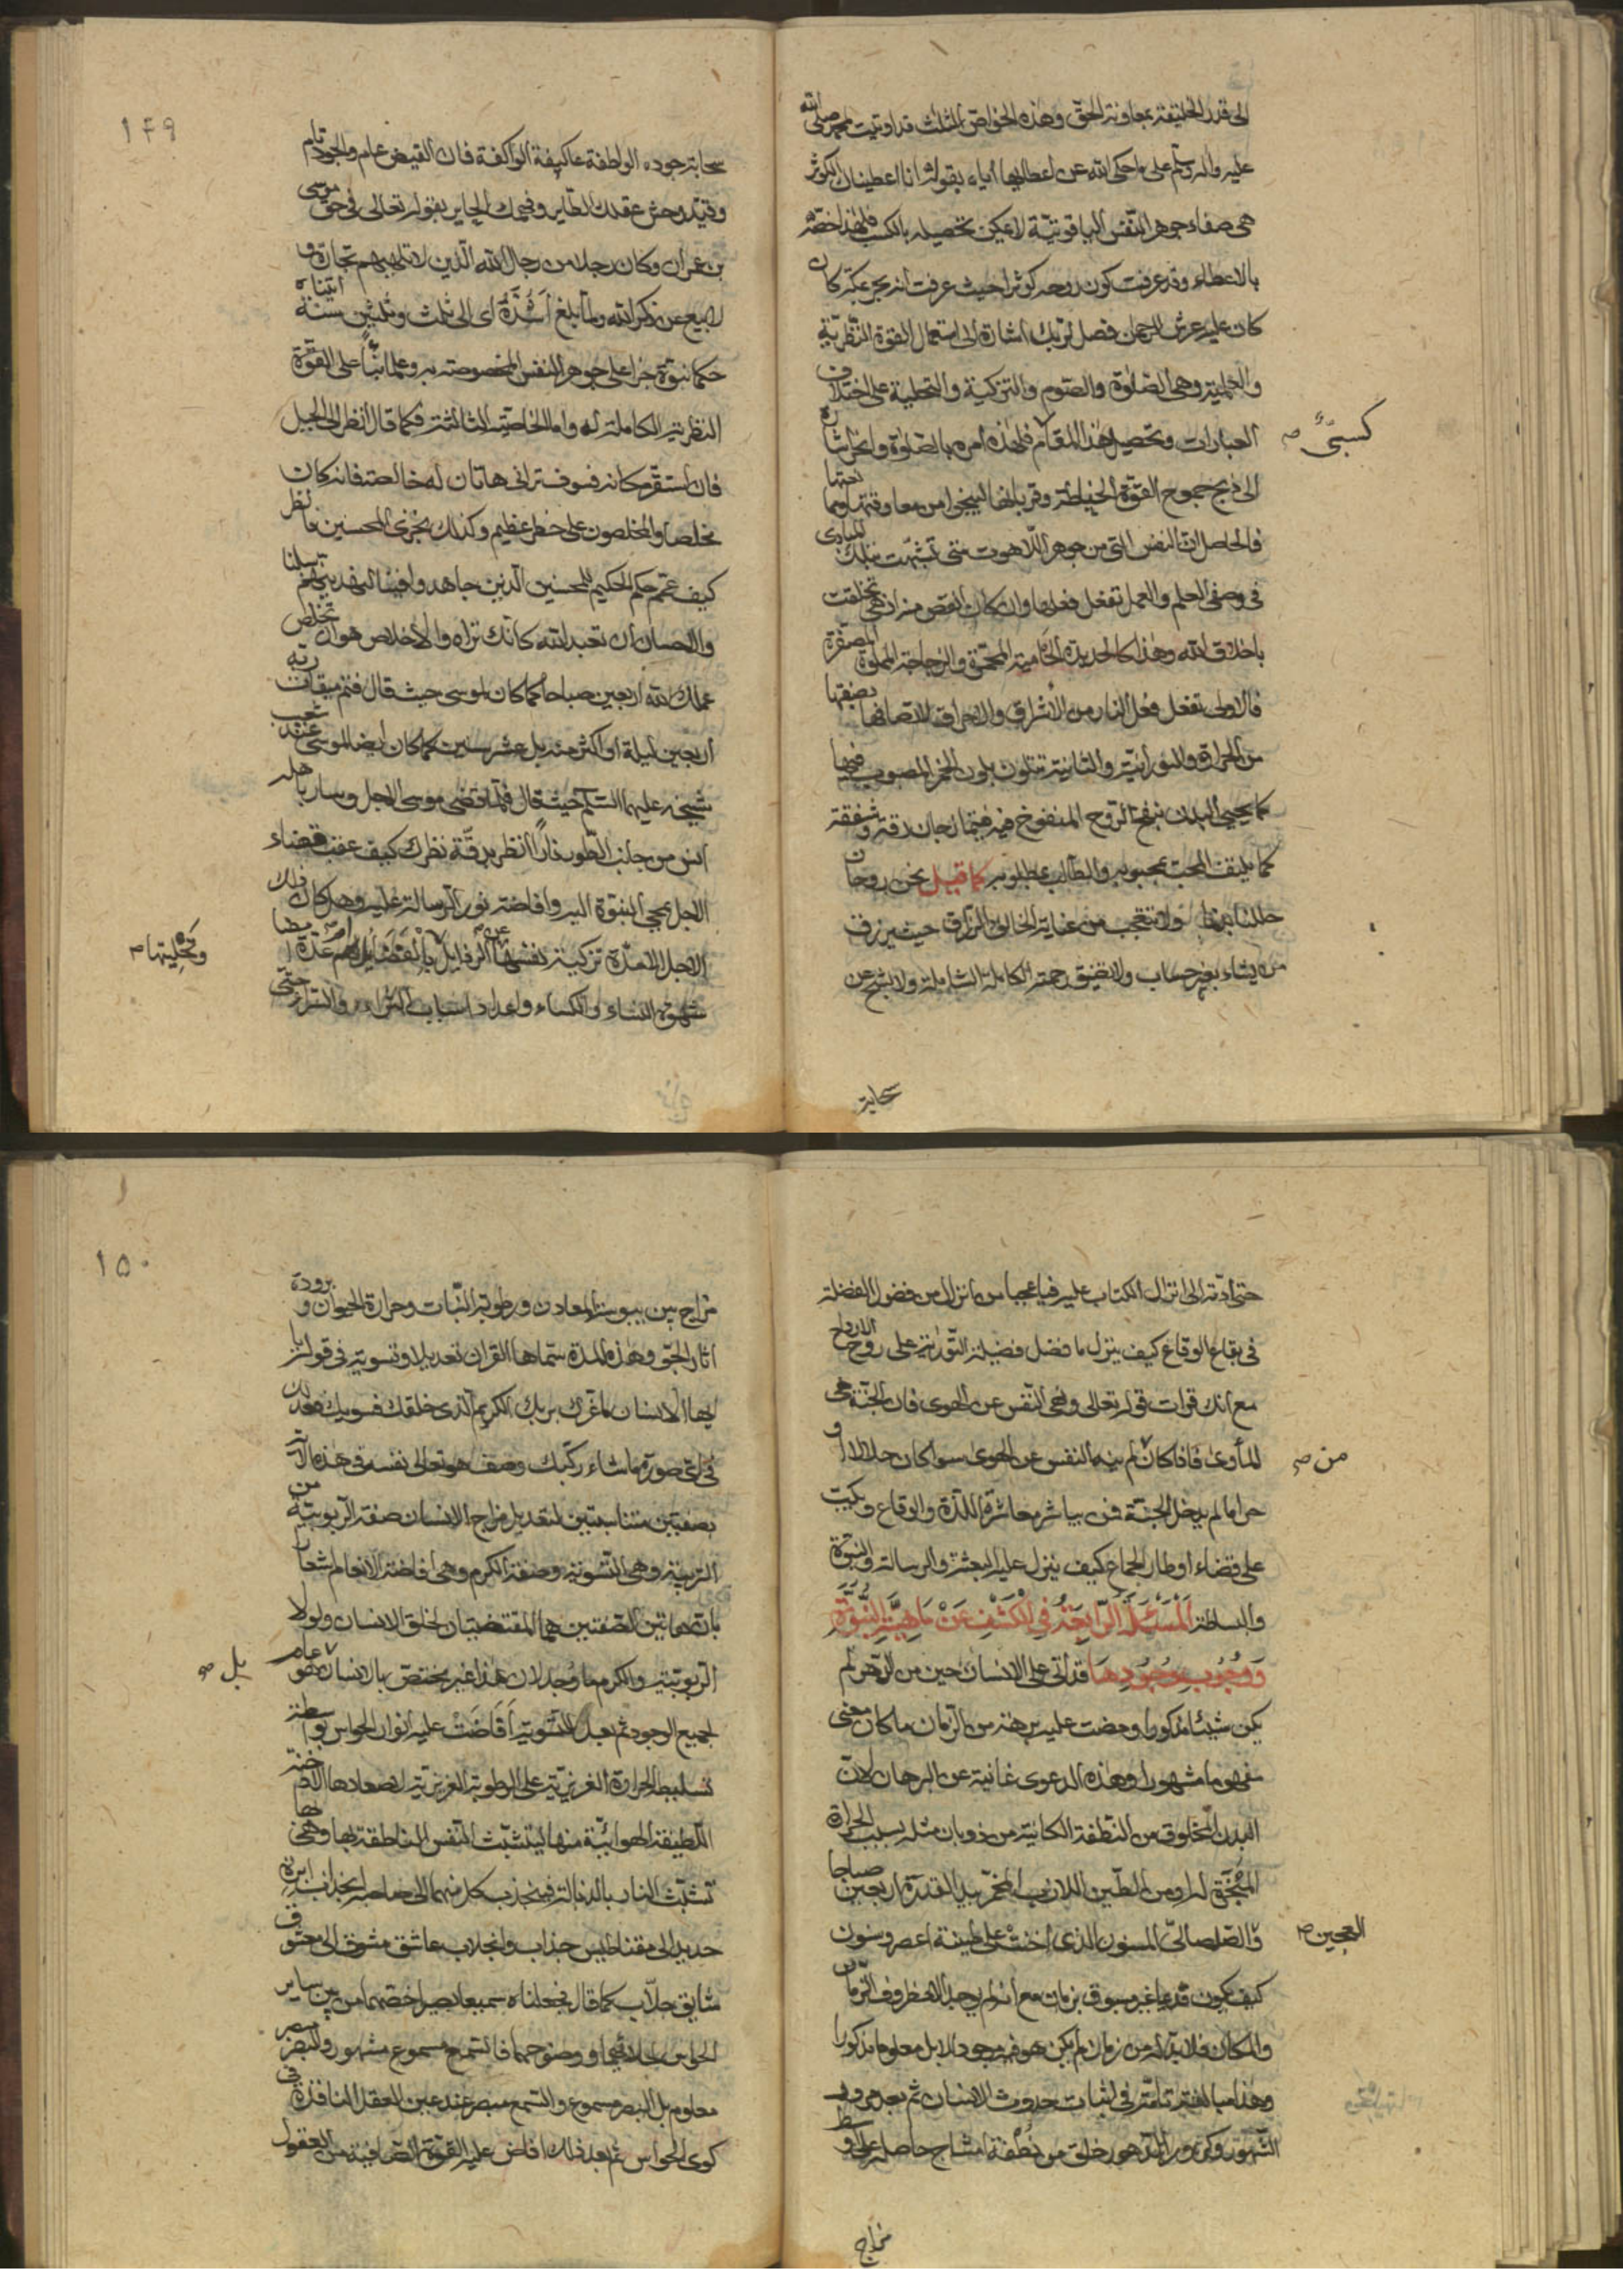 الى قدر الخليقة بمعاونة الحق وهذه الخواص الثلث قد اوتيت محمد صلى الله
عليه وآله وسلم على ما حكى الله عن اعطائها اياه بقوله انا اعطيناك الكوثر
هى صفاء جوهر النفس الياقوتية لا يمكن تحصيله بالكسب فلهذا خصه
بالاعطاء وقد عرفت كون روحه كوثرا حيث عرفت انه بحر بمكة كان
كان عليه عرش الرحمن فصل لربك اشارة الى استعمال القوة النظرية
والعملية وهى الصلوة والصوم والتزكية والتحلية على اختلاف
العبارات وتحصيل هذا المقام فلهذه امره بالصلوة وانحر اشارة
كسبىّ صح
الى ذبح جموح القوة الخيالية وقربانها لينجى من معاوقتها ومما نعتها
فالحاصل ان النفس التى من جوهر اللاهوت متى تشبهت بتلك المبادى
فى وصفى العلم والعمل تفعل فعلها وان كان انقص منه اذ هى تخلقت
باخلاق الله وهذا كالحديدة الحامية المحمرة والزجاجة المملوة المصفرة
فالاولى تفعل فعل النار من الاشراق والاحراق لاتصافها بصفتها
من الحرارة والنورانية والثانية تتلون بلون الخمر المصبوب فيها
كما يحيى البدن بنفخ الروح المنفوخ فيه فيتمازجان لاقة وشفقة
كما يليف المحب بمحبوبه والطالب بمطلوبه كما قيل نحن روحان
حللنا بدنا ولا تتعجب من عناية الخالق الرزاق حيث يرزق
من يشاء بغير حساب ولا تضيق رحمته الكاملة الشاملة ولا تشح عن
سحابة
١٤٩
سحابة جوده الواطفة عاكيفة الواكفة فان الفيض عام والجود تام
وقيد وحش عقلك الطاير وفهمك الحاير بقوله تعالى فى حق موسى
بن عمران وكان رجلا من رجال الله الذين لا تلهيهم تجارة و
لا بيع عن ذكر الله ولما بلغ اشده اى الى ثلث وثلثين سنة اتيناه
حكما نبوة جزاء على جوهر النفس المخصوصة به وعلما بناء على القوة
النظرية الكاملة له واما الخاصية الثالثة فكما قال انظر الى الجبل
فان استقر مكانه فسوف ترانى هاتان له خالصة فانه كان
مخلصا والمخلصون على خطر عظيم وكذلك نجزى المحسنين فانظر
كيف عمم حكم الحكيم للمحسنين الذين جاهدوا فينا لنهدينهم سبلنا
والاحسان ان تعبد الله كانك تراه والاخلاص هو ان تخلص
عملك لله اربعين صباحا كما كان لموسى حيث قال فتم ميقات ربه
اربعين ليلة او اكثر منه بل عشر سنين كما كان ايضا لموسى عند شعيب
شيخه عليهما السلام حيث قال فلما قضى موسى الاجل وسار باهله
انس من جانب الطور نارا انظر برقة نظرك كيف عقب قضاء
الاجل بمجى النبوة اليه وافاضة نور الرسالة عليه وهل كان ذلك
الاجل الا لمدة تزكية نفسها عن الرذايل بالفضايل
وتحليتها صح
شهوة النساء والكساء واعداد اسباب حتى
حتى ادته الى انزال الكتاب عليه فيا عجبا من انزال من فضول الفضلة
فى بقاع الوقاع كيف ينزل ما فضل فضيلة التورية على روح الارواح
مع انك قرات قوله تعالى ونهى النفس عن الهوى فان الجنة هى
الماوى فاذا كان لم ينه النفس عن الهوى سواء كان حلالا او
من صح
حراما لم يدخل الجنة فمن يباشر معاشرة اللذة والوقاع ويكب
على قضاء اوطار الجماع كيف ينزل عليه البعثة والرسالة والنبوة
والبساطة اَلْمَسْئَلَةُ الرَّابِعَةُ فِى الْكَشْفِ عَنْ مَاهِيَّةِ النُّبُوَّةِ
وَوُجُوبِ وُجُودِهَا قد اتى على الانسان حين من الدهر لم
يكن شيئا مذكورا ومضت عليه برهة من الزمان ما كان معنى
مفهوما مشهورا وهذه الدعوى غانية عن البرهان لان
البدن المخلوق من النطفة الكائنة من ذوبان مثله بسبب الحرارة
المجففة له او من الطين اللازب المخمر بيد القدرة اربعين صباحا
والصلصالى المسنون الذى اخنت على طينة اعصر وسنون
العجين صح
كيف يكون قديما غير مسبوق بزمان مع انه لم يوجد الا فى ظروف الزمان
والمكان فلا بد له من زمان لم يكن هو فيه موجودا بل معلوما مذكورا
وهذا مبالغة تامة فى اثبات حدوث الانسان ثم بعد مرور
الشهور وكرور الدهور خلق من نطفة امشاج حاصلة على اوسط
مزاج
١٥٠
مزاج بين يبوسة المعادن ورطوبة النبات وحرارة الحيوان وبرودة
اثار الجو وهذه المدة سماها القران تعديلا وتسوية فى قوله يا
ايها الانسان ما غرك بربك الكريم الذى خلقك فسويك فعدلك
فى اى صورة ما شاء ركبك وصف هو تعالى نفسه فى هذه الاية
بصفتين متناسبتين لتعديل مزاج الانسان صفة الربوبية من
التربية وهى التسوية وصفة الكرم وهى افاضة الانعام اشعارا
بان هاتين الصفتين هما المقتضيتان لخلق الانسان ولولا
الربوبية والكرم ما وجد لان هذا غير مختص بالانسان هو عام
بل صح
لجميع الوجود ثم بعد التسوية اَفَاضَتْ عليه انوار الحواس بواسطة
تسليط الحرارة الغريزية على الرطوبة الغريزية لاصعادها الادخنة
اللطيفة الهوائية منها ليتشبث النفس الناطقة بها وهى لها
تشبث النار بالذبالة فينجذب كل منهما الى صاحبه انجذاب ابرة
حديد الى مقناطيس جذاب وانجلاب عاشق مشوق الى معشوق
شايق جلاب كما قال فجعلناه سميعا بصيرا خصهما من بين ساير
الحواس لجلائهما ووضوحهما فالسمع مسموع مشهور والبصر مبصر
معلوم بل البصر مسموع والسمع مبصر عند عين العقل النافذة فى
كوى الحواس ثم بعد ذلك افاض عليه القوة الصافية من العقول